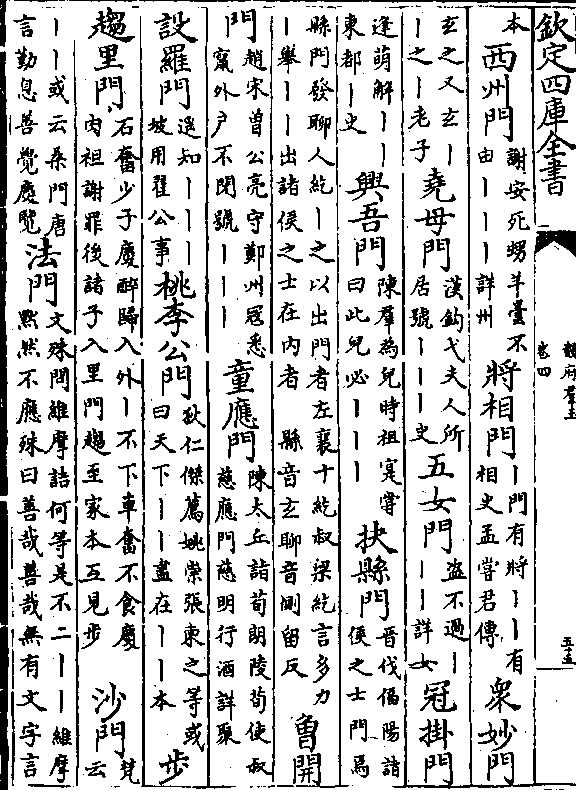 欽定四庫全書 韻府羣玉 卷四 五十五
本 西州門 謝安死甥羊曇不由丨丨丨詳州 將相門 丨門有將丨丨有相史孟嘗君傳 衆妙門
玄之又玄丨丨之丨老子 堯母門 漢鈎弋夫人所居號丨丨丨史 五女門 盗不過丨丨丨詳女 冠掛門
逢萌解丨丨東都丨史 興吾門 陳羣為兒時祖寔嘗曰此兒必丨丨丨 抉縣門 晉伐偪陽諸侯之士門焉
縣門發聊人紇丨之以出門者左襄十紇叔梁紇言多力丨舉丨丨出諸侯之士在内者 縣音玄聊音側留反 魯開
門 趙宋曾公亮守鄭州冦悉竄外户不閉號丨丨丨 童應門 陳太丘詣荀朗陵荀使叔慈應門慈明行酒詳聚
設羅門 遥知丨丨丨坡用翟公事 桃李公門 狄仁傑薦姚崇張柬之等或曰天下丨丨盡在丨丨本 步
趨里門 石奮少子慶醉歸入外丨不下車奮不食慶肉袒謝罪後諸子入里門趨至家本互見步 沙門 梵云
丨丨或云桑門唐言勤息善覺慶覽 法門 文殊問維摩詰何等是不二丨丨維摩黙然不應殊曰善哉善哉無有文字言